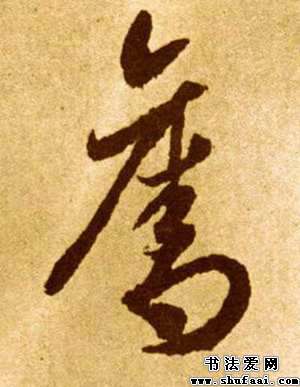 舊
书法爱网
www.shufaai.com